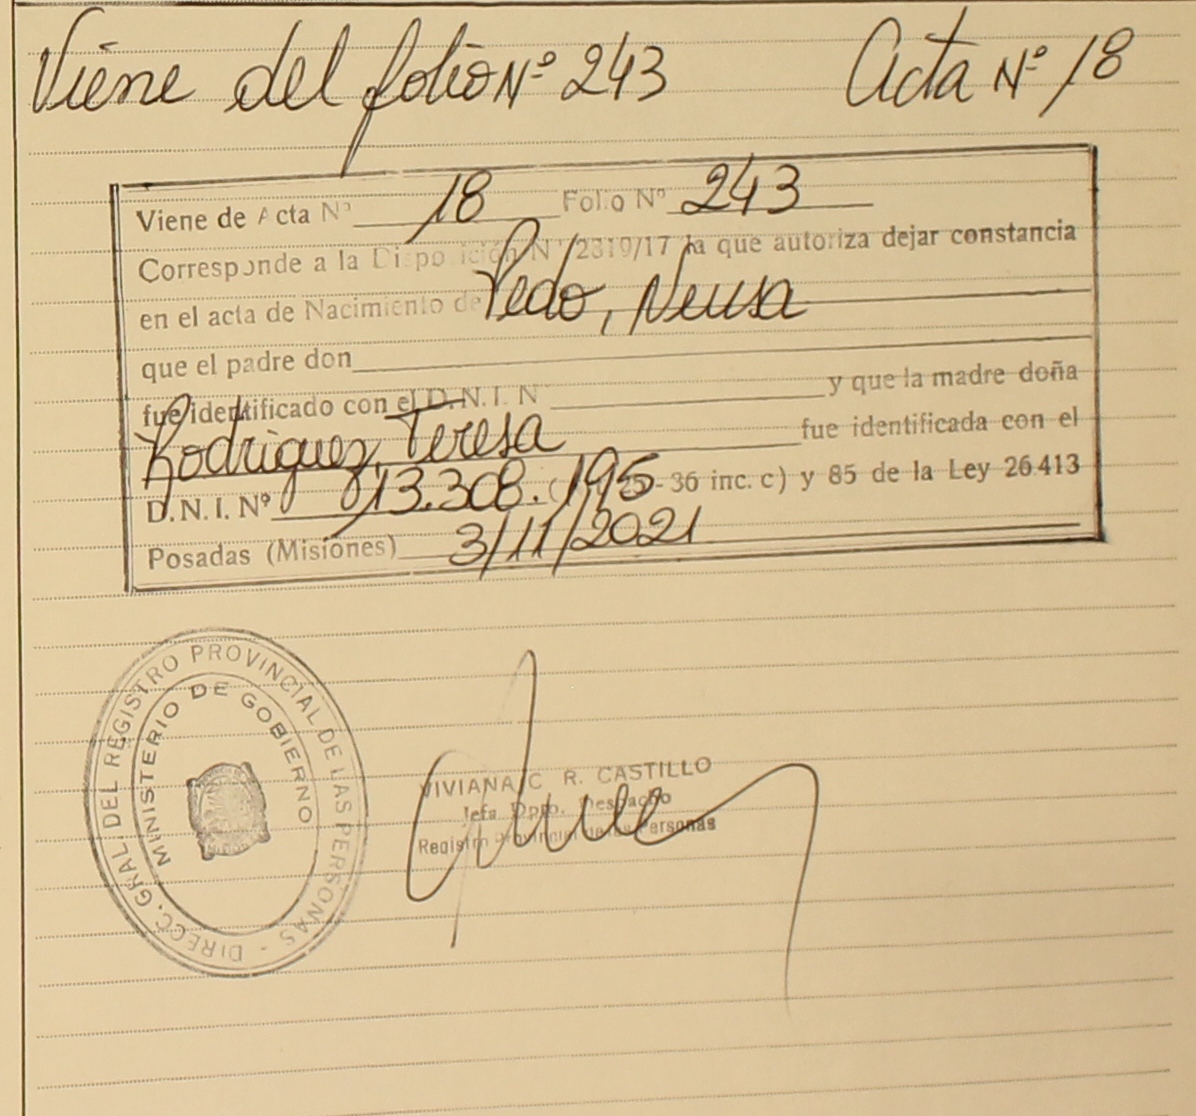 Viene del folio Nº 243 Acta Nº 18
Viene de Acta Nº 18 Folio Nº 243
Corresponde a la Disposición Nº 2319/17 la que autoriza dejar constancia
en el acta de Nacimiento de Pedo, Neusa
que el padre don
fue identificado con el D.N.I. N y que la madre doña
Rodriguez, Teresa fue identificada con el
D.N.I. Nº 13.308.195 - 36 inc. c) y 85 de la Ley 26.413
Posadas (Misiones) 3/11/2021
DIRECC. GRAL. DEL REGISTRO PROVINCIAL DE LAS PERSONAS -
MINISTERIO DE GOBIERNO
VIVIANA C. R. CASTILLO
Jefa Dpto. Despacho
Registro Provincial de las Personas